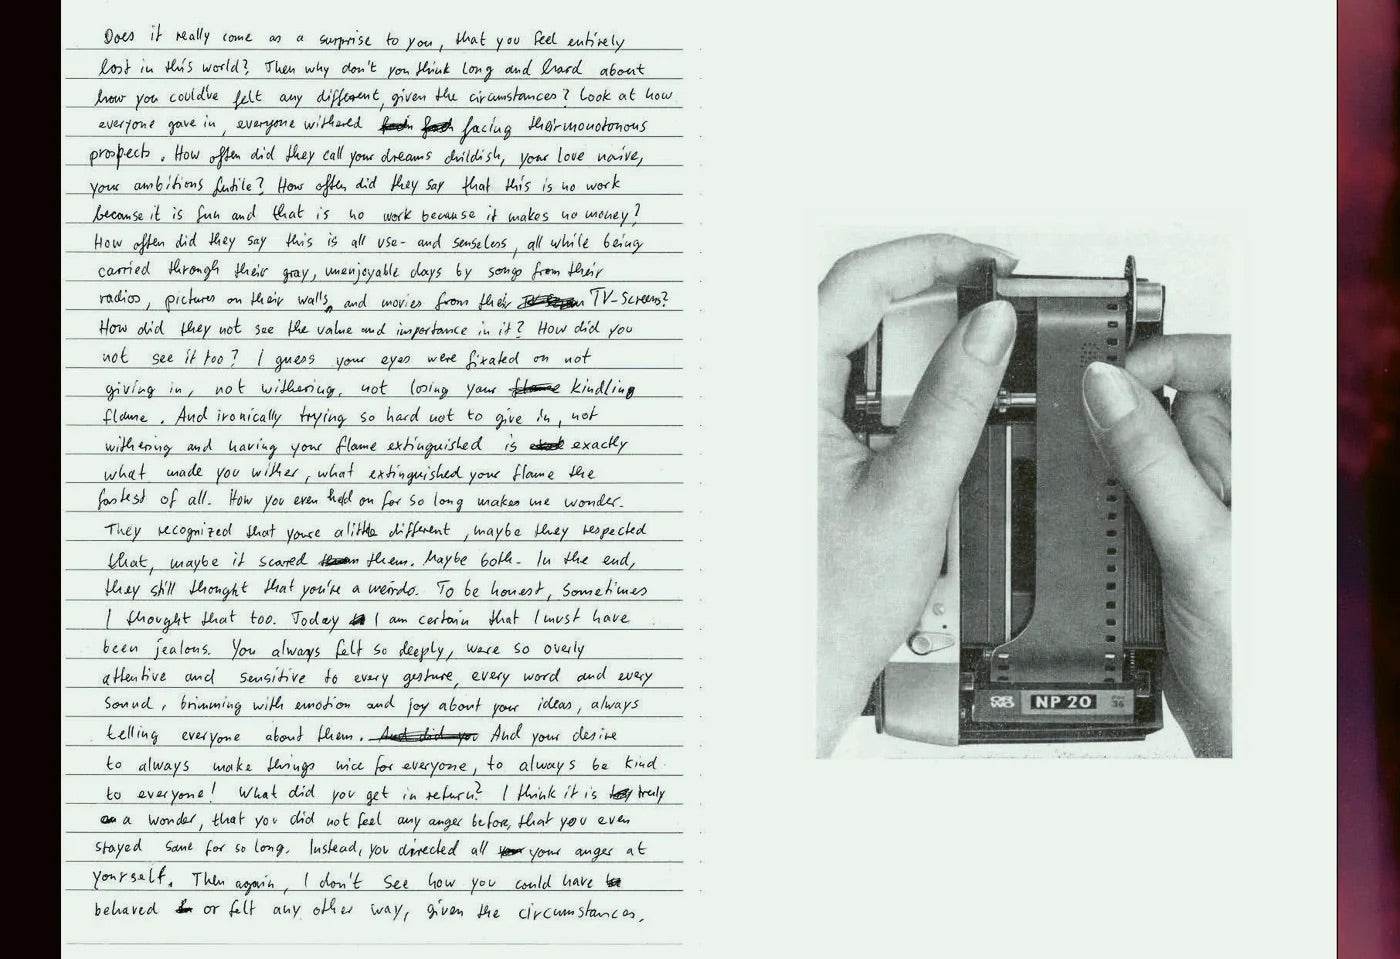 Does it really come as a surprise to you, that you feel entirely
lost in this world? Then why don't you think long and hard about
how you could've felt any different, given the circumstances? Look at how
everyone gave in, everyone withered facing their monotonous
prospects. How often did they call your dreams childish, your love naive,
your ambitions futile? How often did they say that this is no work
because it is fun and that is no work because it makes no money?
How often did they say this is all use- and senseless, all while being
carried through their gray, unenjoyable days by songs from their
radios, pictures on their walls, and movies from their TV-Screens?
How did they not see the value and importance in it? How did you
not see it too? I guess your eyes were fixated on not
giving in, not withering, not losing your kindling
flame. And ironically trying so hard not to give in, not
withering and having your flame extinguished is exactly
what made you wither, what extinguished your flame the
fastest of all. How you even held on for so long makes me wonder.
They recognized that youre a little different, maybe they respected
that, maybe it scared them. Maybe both. In the end,
they still thought that you're a weirdo. To be honest, Sometimes
I thought that too. Today I am certain that I must have
been jealous. You always felt so deeply, were so overly
attentive and sensitive to every gesture, every word and every
sound, brimming with emotion and joy about your ideas, always
telling everyone about them. And did you And your desire
to always make things nice for everyone, to always be kind
to everyone! What did you get in return? I think it is truly
a wonder, that you did not feel any anger before, that you even
stayed sane for so long. Instead, you directed all your anger at
yourself. Then again, I don't see how you could have
behaved or felt any other way, given the circumstances.
ORWO NP 20 36